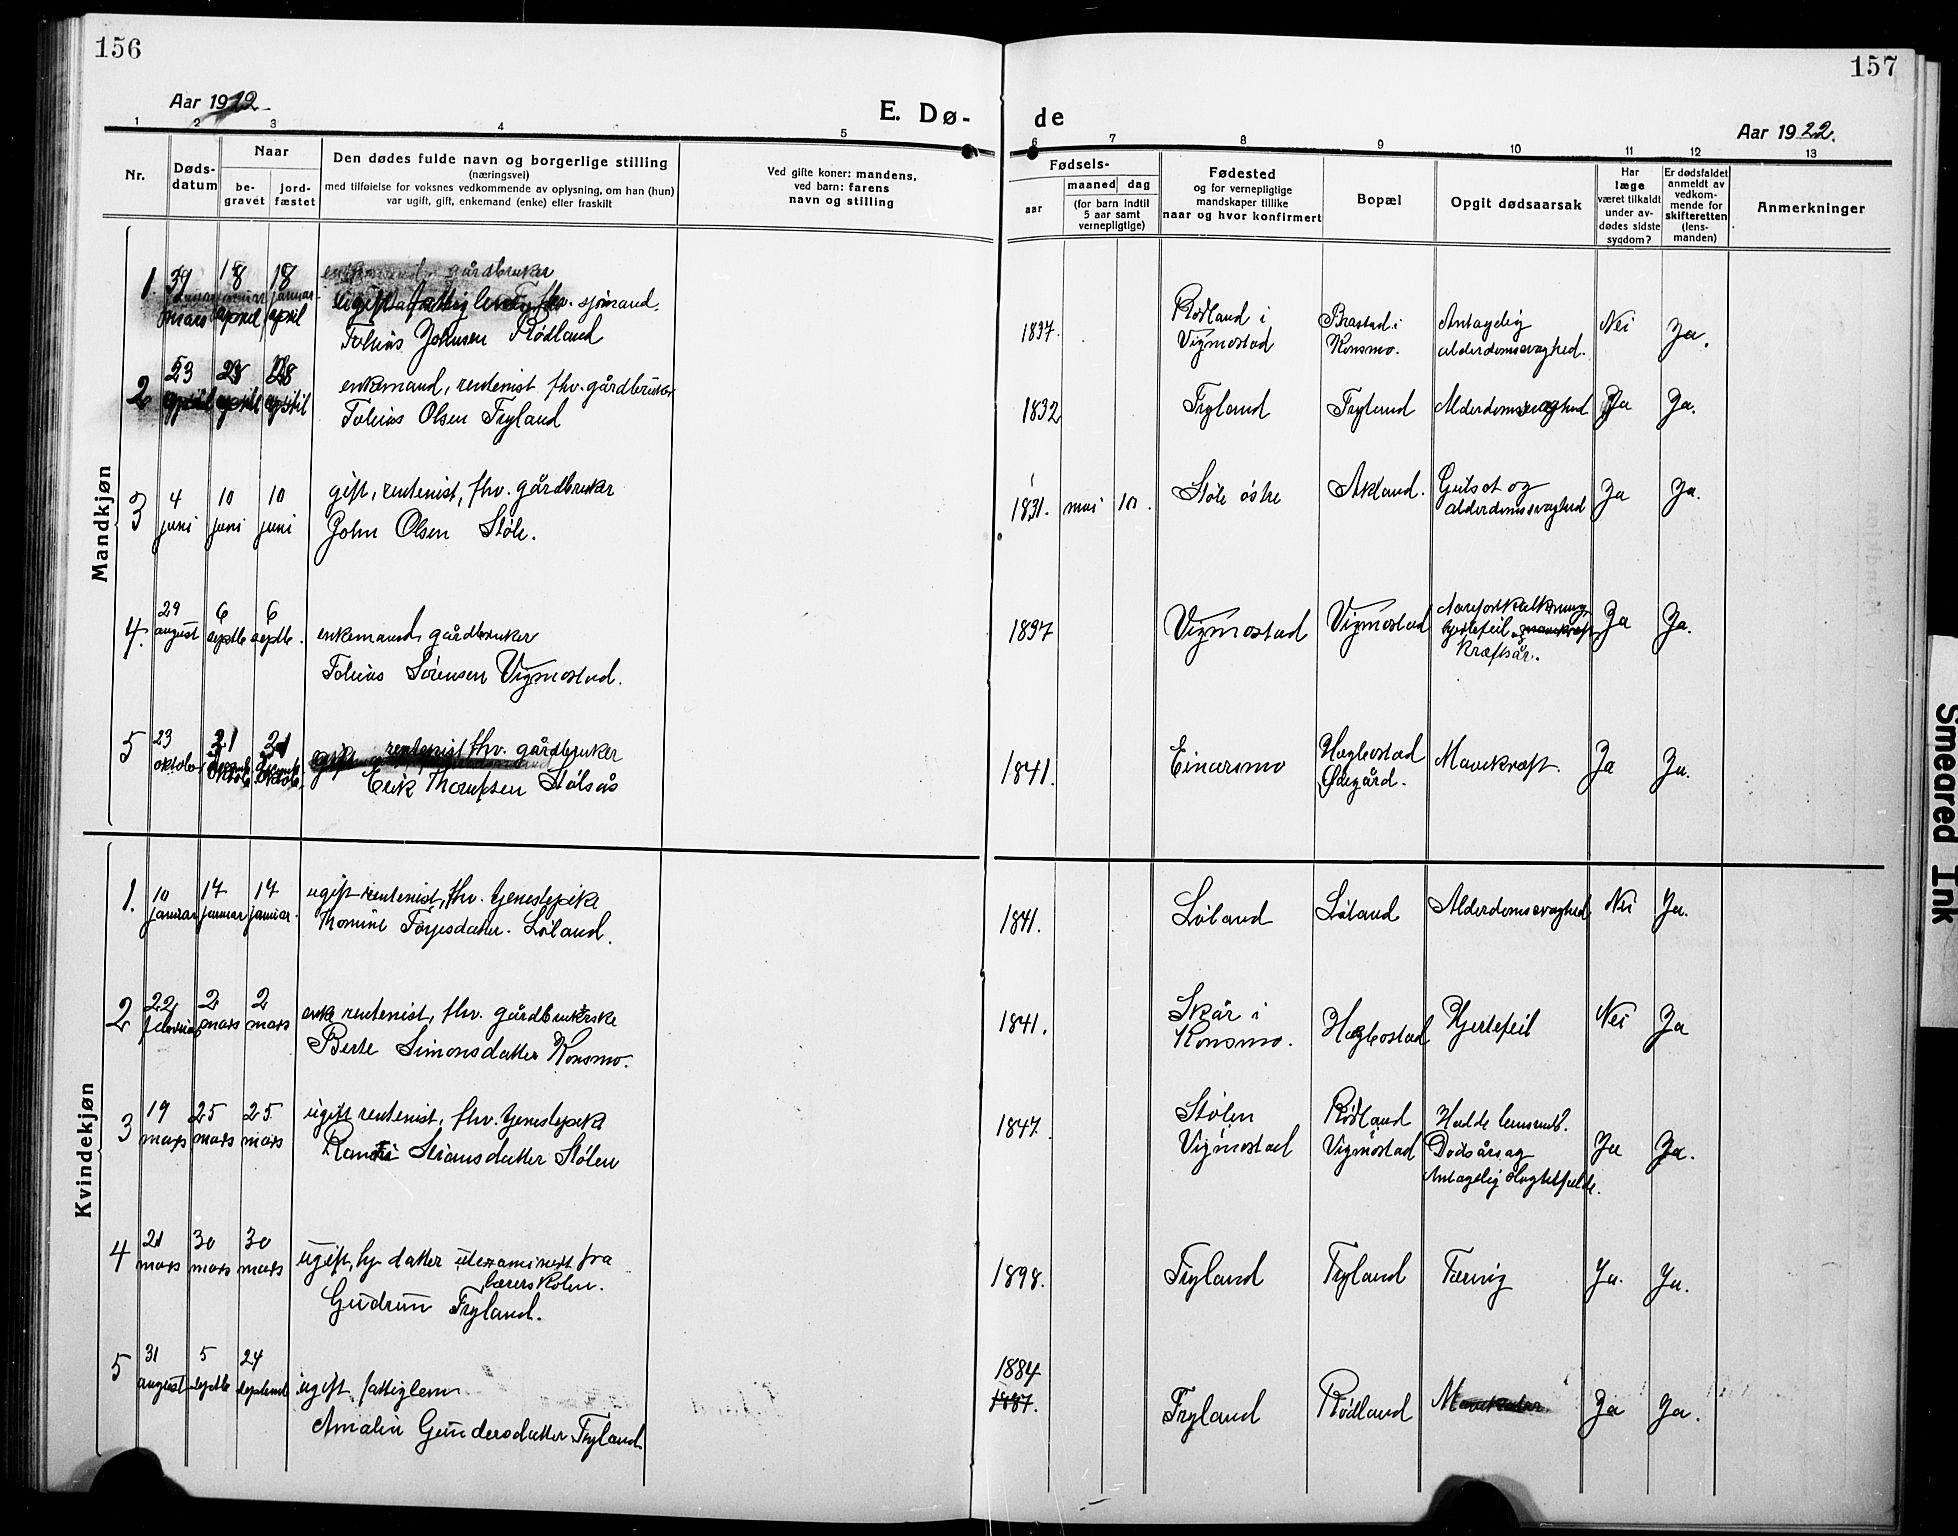 156
157
Aar 1922
E. Dø-
de
Aar 1922.
1 2 3 4 5 6 7 8 9 10 11 12 13
Nr.
Døds-
datum
Naar
be-
gravet
jord-
fæstet
Den dødes fulde navn og borgerlige stilling
(næringsvei)
med tilføielse for voksnes vedkommende av oplysning, om han (hun)
var ugift, gift, enkemand (enke) eller fraskilt
Ved gifte koner: mandens,
ved barn: farens
navn og stilling
Fødsels-
aar
maaned
dag
(for barn indtil
5 aar samt
vernepligtige)
Fødested
og for vernepligtige
mandskaper tillike
naar og hvor konfirmert
Bopæl
Opgit dødsaarsak
Har
læge
været tilkaldt
under av-
dødes sidste
sygdom?
Er dødsfaldet
anmeldt av
vedkom-
mende for
skifteretten
(lens-
manden)
Anmerkninger
Mandkjøn
1. mars 18 april 18 april gårdbruker
fhv. sjömand.
Tobias Johnsen Rödland
1837. Rödland i
Vigmostad
Brastad i
Konsmo.
Antagelig
alderdomssvaghed.
Nei Ja.
2 april april april enkemand, rentenist fhv. gårdbruker
Tobias Olsen Tryland
1832 Tryland Tryland Alderdomssvaghed Ja Ja.
3 4 juni 10 juni 10 juni gift, rentenist, fhv. gårdbruker
John Olsen Støle.
1831. mai 10. Støle östre Akland. Gulsot og
alderdomssvaghed
Ja Ja.
4. 29 august 6 septb 6 septb. enkemand, gårdbruker
Tobias Sörensen Vigmostad.
1837 Vigmostad Vigmostad Aareforkalkning
hjertefeil
kræftsår.
Ja Ja.
5 23 oktober 31 31 rentenist fhv. gårdbruker
Erik Thorufsen Stölsås
1841. Einarsmo Hægbostad
Ødegård.
Mavekræft. Ja Ja.
Kvindekjøn
1. 10 januar 17 januar 17 januar. ugift rentenist, fhv. tjenestepike
Thomine Törjesdatter. Löland.
1841. Löland Löland Alderdomssvaghed Nei Ja.
2 22 februar 2 mars 2 mars enke rentenist, fhv. gårdbrukerske
Berte Simonsdatter Konsmo.
1841. Skår i
Konsmo.
Hægbostad Hjertefeil Nei Ja
3 19 mars 25 mars 25 mars ugift rentenist, fhv. tjenestepike
Simonsdatter Stölen
1847. Stölen
Vigmostad
Rödland
Vigmostad
Dödsårsag
Antagelig slagtilfælde.
Ja Ja.
4 21 mars 30 mars 30 mars ugift, hj datter utexaminert fra
lærerskolen.
Gudrun Tryland.
1898. Tryland Tryland Tæring Ja. Ja.
5 31 august 5 septb 24 septemb ugift fattiglem
Amalia Gundersdatter Tryland
1884
1887.
Tryland Rödland Ja Ja.
Smeared Ink